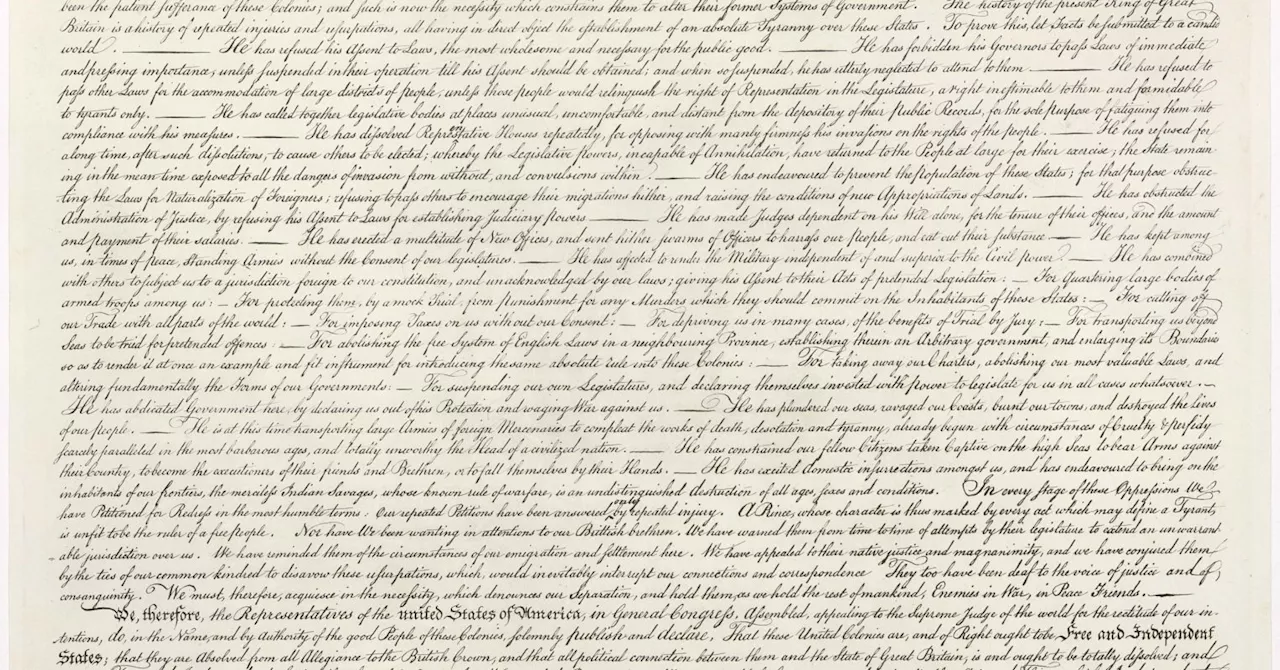 been the patient sufferance of these Colonies; and such is now the necessity which constrains them to alter their former Systems of Government. The history of the present King of Great
Britain is a history of repeated injuries and usurpations, all having in direct object the establishment of an absolute Tyranny over these States. To prove this, let Facts be submitted to a candid
world. — He has refused his Assent to Laws, the most wholesome and necessary for the public good. — He has forbidden his Governors to pass Laws of immediate
and pressing importance, unless suspended in their operation till his Assent should be obtained; and when so suspended, he has utterly neglected to attend to them — He has refused to
pass other Laws for the accommodation of large districts of people, unless those people would relinquish the right of Representation in the Legislature, a right inestimable to them and formidable
to tyrants only. — He has called together legislative bodies at places unusual, uncomfortable, and distant from the depository of their public Records, for the sole purpose of fatiguing them into
compliance with his measures. — He has dissolved Representative Houses repeatedly, for opposing with manly firmness his invasions on the rights of the people. — He has refused for
a long time, after such dissolutions, to cause others to be elected; whereby the Legislative powers, incapable of Annihilation, have returned to the People at large for their exercise; the State remain
ing in the mean time exposed to all the dangers of invasion from without, and convulsions within. — He has endeavoured to prevent the population of these States; for that purpose obstruc
ting the Laws for Naturalization of Foreigners; refusing to pass others to encourage their migrations hither, and raising the conditions of new Appropriations of Lands. — He has obstructed the
Administration of Justice, by refusing his Assent to Laws for establishing Judiciary powers — He has made Judges dependent on his Will alone, for the tenure of their offices, and the amount
and payment of their salaries. — He has erected a multitude of New Offices, and sent hither swarms of Officers to harass our people, and eat out their substance. — He has kept among
us, in times of peace, Standing Armies without the Consent of our legislatures. — He has affected to render the Military independent of and superior to the Civil power. — He has combined
with others to subject us to a jurisdiction foreign to our constitution, and unacknowledged by our laws; giving his Assent to their Acts of pretended Legislation: — For Quartering large bodies of
armed troops among us: — For protecting them, by a mock Trial, from punishment for any Murders which they should commit on the Inhabitants of these States: — For cutting off
our Trade with all parts of the world: — For imposing Taxes on us without our Consent: — For depriving us in many cases, of the benefits of Trial by Jury; — For transporting us beyond
Seas to be tried for pretended offences — For abolishing the free System of English Laws in a neighbouring Province, establishing therein an Arbitrary government, and enlarging its Boundaries
so as to render it at once an example and fit instrument for introducing the same absolute rule into these Colonies: — For taking away our Charters, abolishing our most valuable Laws, and
altering fundamentally the Forms of our Governments: — For suspending our own Legislatures, and declaring themselves invested with power to legislate for us in all cases whatsoever. —
He has abdicated Government here, by declaring us out of his Protection and waging War against us. — He has plundered our seas, ravaged our Coasts, burnt our towns, and destroyed the lives
of our people. — He is at this time transporting large Armies of foreign Mercenaries to compleat the works of death, desolation and tyranny, already begun with circumstances of Cruelty & perfidy
scarcely paralleled in the most barbarous ages, and totally unworthy the Head of a civilized nation. — He has constrained our fellow Citizens taken Captive on the high Seas to bear Arms against
their Country, to become the executioners of their friends and Brethren, or to fall themselves by their Hands. — He has excited domestic insurrections amongst us, and has endeavoured to bring on the
inhabitants of our frontiers, the merciless Indian Savages, whose known rule of warfare, is an undistinguished destruction of all ages, sexes and conditions. In every stage of these Oppressions We
have Petitioned for Redress in the most humble terms: Our repeated Petitions have been answered only by repeated injury. A Prince, whose character is thus marked by every act which may define a Tyrant,
is unfit to be the ruler of a free people. Nor have We been wanting in attentions to our Brittish brethren. We have warned them from time to time of attempts by their legislature to extend an unwarrant
able jurisdiction over us. We have reminded them of the circumstances of our emigration and settlement here. We have appealed to their native justice and magnanimity, and we have conjured them
by the ties of our common kindred to disavow these usurpations, which, would inevitably interrupt our connections and correspondence They too have been deaf to the voice of justice and of
consanguinity. We must, therefore, acquiesce in the necessity, which denounces our Separation, and hold them, as we hold the rest of mankind, Enemies in War, in Peace Friends. —
We, therefore, the Representatives of the united States of America, in General Congress, Assembled, appealing to the Supreme Judge of the world for the rectitude of our in-
tentions, do, in the Name, and by Authority of the good People of these Colonies, solemnly publish and declare, That these United Colonies are, and of Right ought to be Free and Independent
States; that they are Absolved from all Allegiance to the British Crown, and that all political connection between them and the State of Great Britain, is and ought to be totally dissolved; and